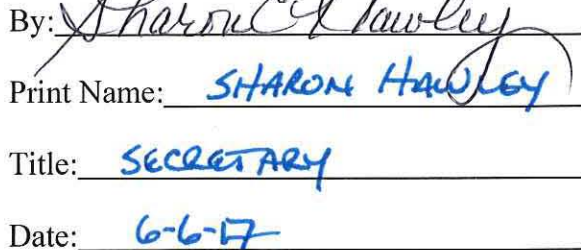 By: Sharon C Hawley
Print Name: SHARON HAWLEY
Title: SECRETARY
Date: 6-6-17